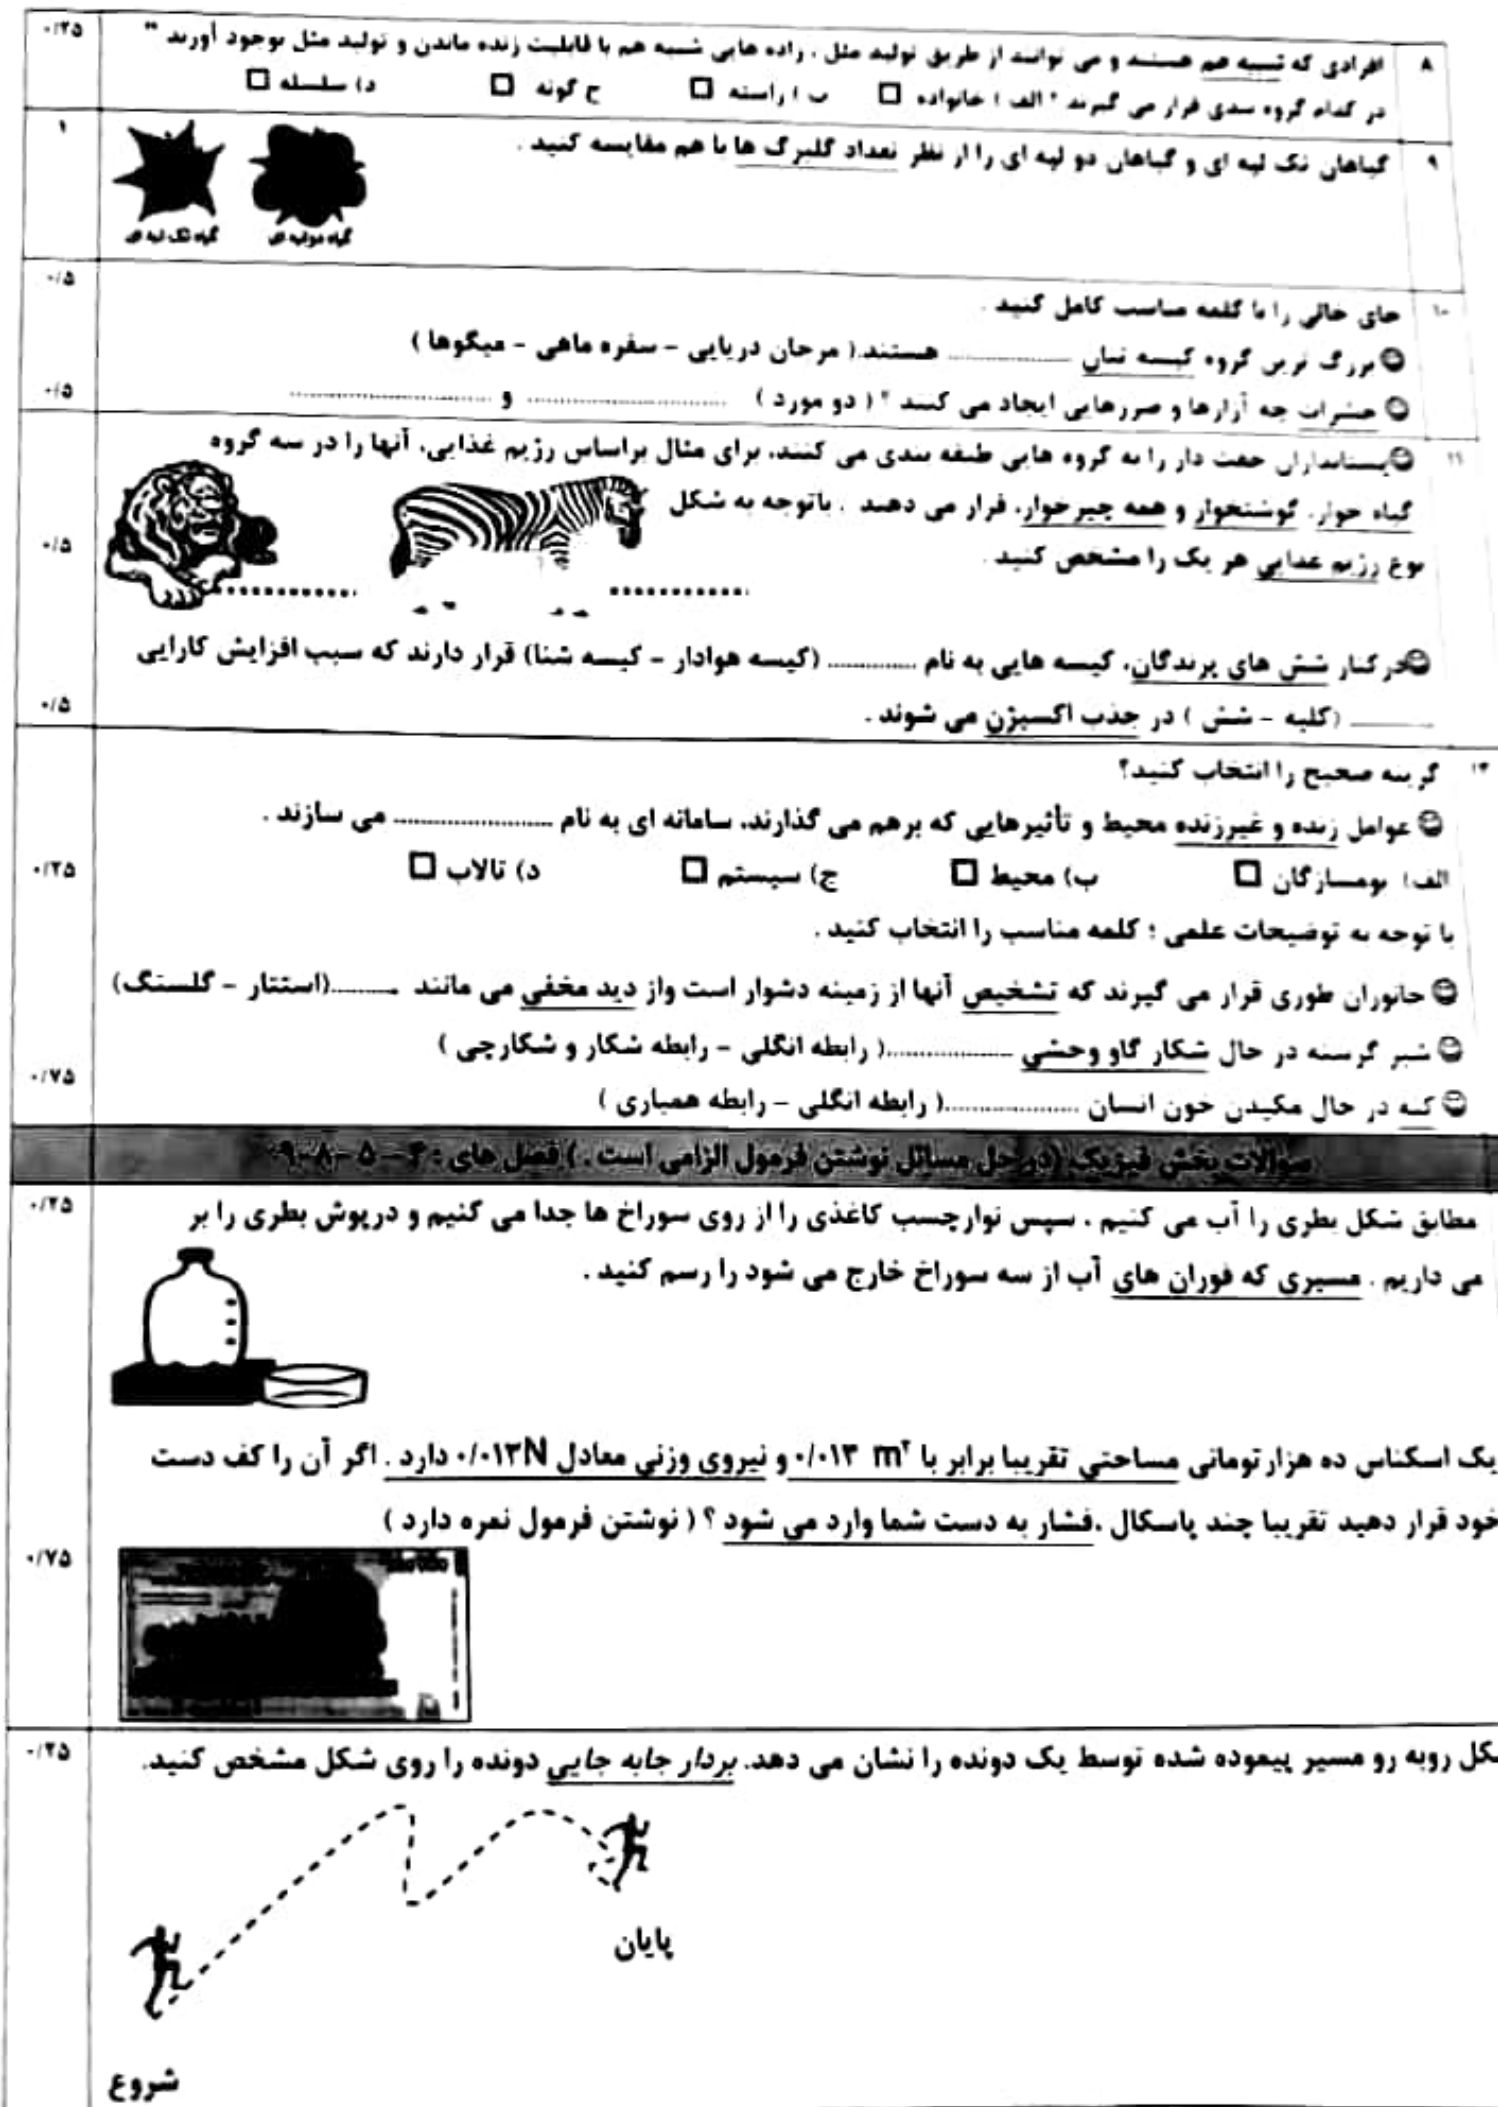 ۸ افرادی که شبیه هم هستند و می توانند از طریق تولید مثل ، زاده هایی شبیه هم با قابلیت زنده ماندن و تولید مثل بوجود آورند " ۰/۲۵
در کدام گروه بندی قرار می گیرند ؟ الف ) خانواده □ ب ) راسته □ ج گونه □ د) سلسله □
۹ گیاهان تک لپه ای و گیاهان دو لپه ای را از نظر تعداد گلبرگ ها با هم مقایسه کنید . ۱
گیاه دولپه ای گیاه تک لپه ای
۱۰ جای خالی را با کلمه مناسب کامل کنید . ۰/۵
بزرگ ترین گروه کیسه تنان .............. هستند.( مرحان دریایی - سفره ماهی - میگوها )
حشرات چه آزارها و ضررهایی ایجاد می کنند ؟ ( دو مورد ) ........................ و ........................ ۰/۵
۱۱ پستانداران جفت دار را به گروه هایی طبقه بندی می کنند، برای مثال براساس رژیم غذایی، آنها را در سه گروه
گیاه خوار، گوشتخوار و همه چیزخوار، قرار می دهند . باتوجه به شکل
نوع رژیم غذایی هر یک را مشخص کنید . ............. ............. ۰/۵
در کنار شش های پرندگان، کیسه هایی به نام ............. (کیسه هوادار - کیسه شنا) قرار دارند که سبب افزایش کارایی
............. (کلیه - شش ) در جذب اکسیژن می شوند . ۰/۵
گزینه صحیح را انتخاب کنید؟
عوامل زنده و غیرزنده محیط و تأثیرهایی که برهم می گذارند، سامانه ای به نام ........................ می سازند .
الف) بومسازگان □ ب) محیط □ ج) سیستم □ د) تالاب □ ۰/۲۵
با توجه به توضیحات علمی ؛ کلمه مناسب را انتخاب کنید .
جانوران طوری قرار می گیرند که تشخیص آنها از زمینه دشوار است واز دید مخفی می مانند ..........(استتار - گلسنگ)
شیر گرسنه در حال شکار گاو وحشی ...................( رابطه انگلی - رابطه شکار و شکارچی )
کنه در حال مکیدن خون انسان ....................( رابطه انگلی - رابطه همیاری ) ۰/۷۵
سوالات بخش فیزیک (درحل مسائل نوشتن فرمول الزامی است . ) فصل های : ۴-۵-۸-۹
مطابق شکل بطری را آب می کنیم . سپس نوارچسب کاغذی را از روی سوراخ ها جدا می کنیم و درپوش بطری را بر ۰/۲۵
می داریم . مسیری که فوران های آب از سه سوراخ خارج می شود را رسم کنید .
یک اسکناس ده هزار تومانی مساحتی تقریبا برابر با ۰/۰۱۳ m² و نیروی وزنی معادل ۰/۰۱۳N دارد . اگر آن را کف دست
خود قرار دهید تقریبا چند پاسکال ،فشار به دست شما وارد می شود ؟ ( نوشتن فرمول نمره دارد ) ۰/۷۵
کل روبه رو مسیر پیموده شده توسط یک دونده را نشان می دهد. بردار جابه جایی دونده را روی شکل مشخص کنید. ۰/۲۵
پایان
شروع